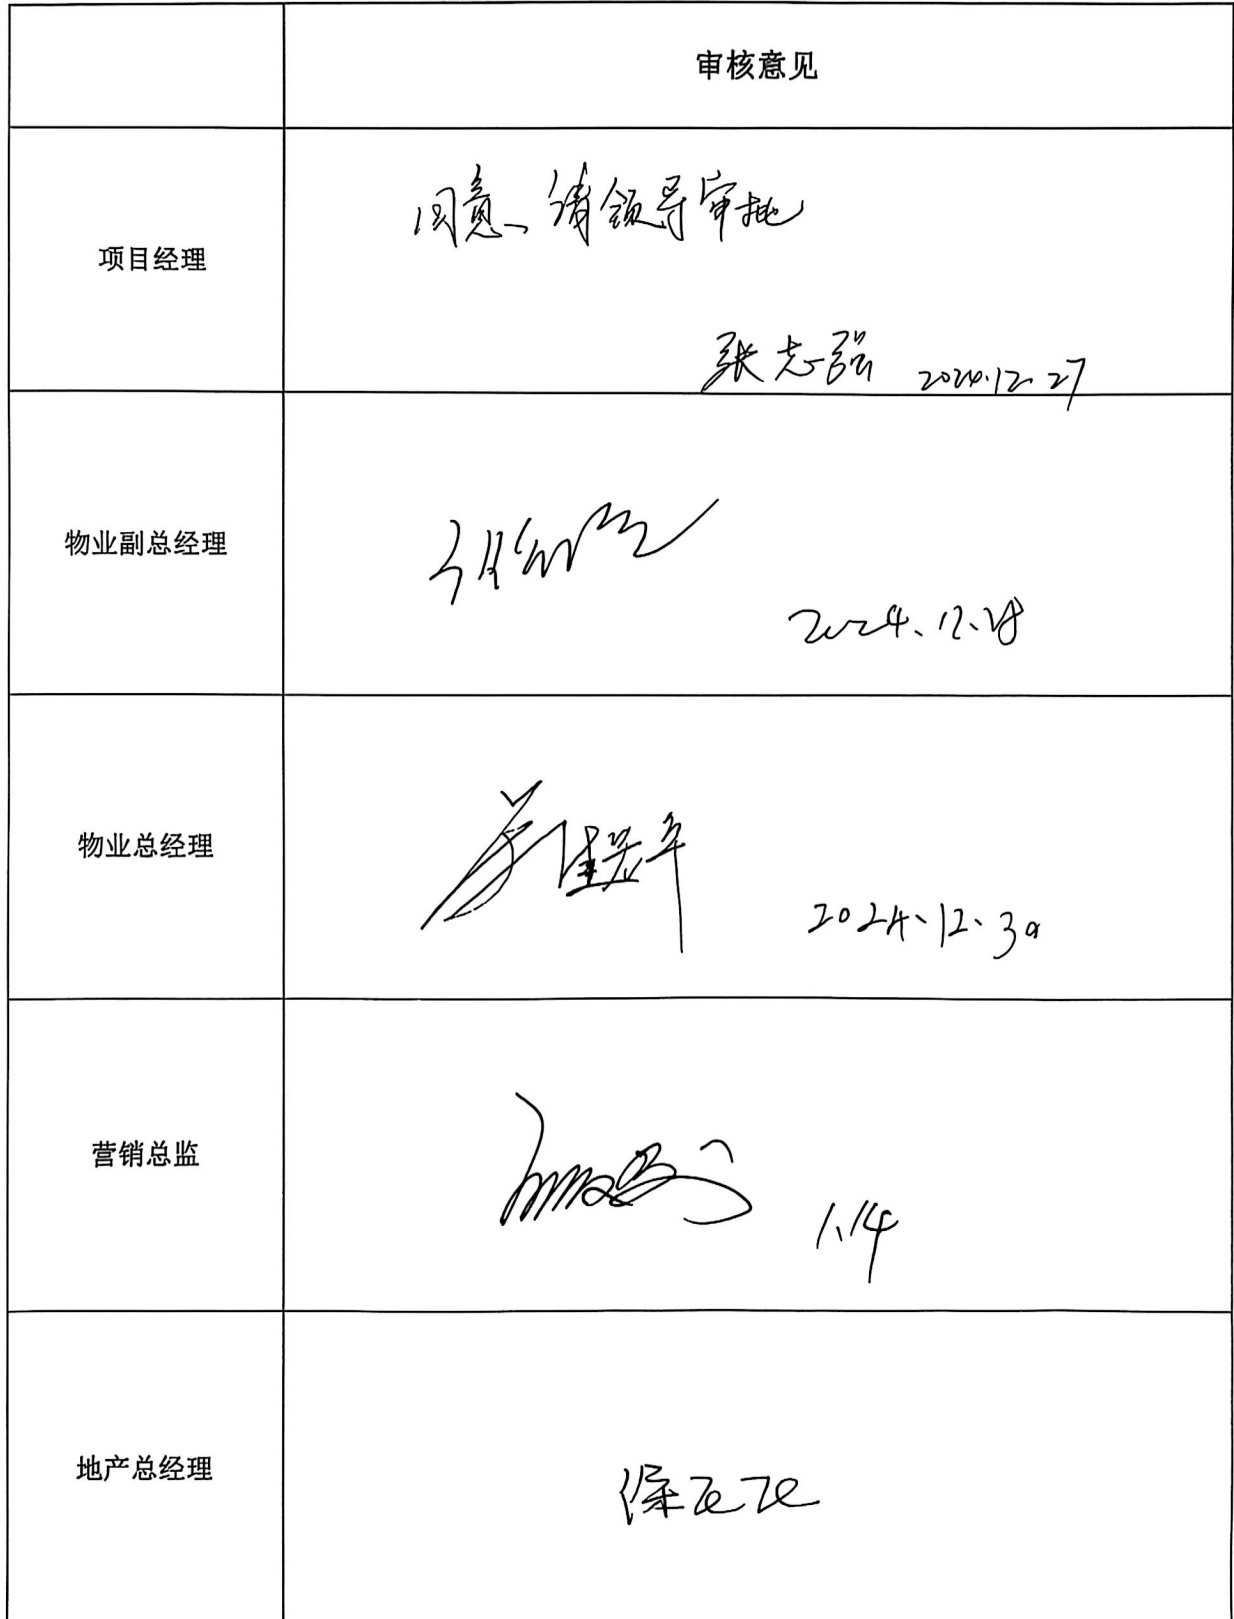 审核意见
项目经理
同意、请领导审批
张志强 2024.12.27
物业副总经理
2024.12.28
物业总经理
2024.12.30
营销总监
1.14
地产总经理